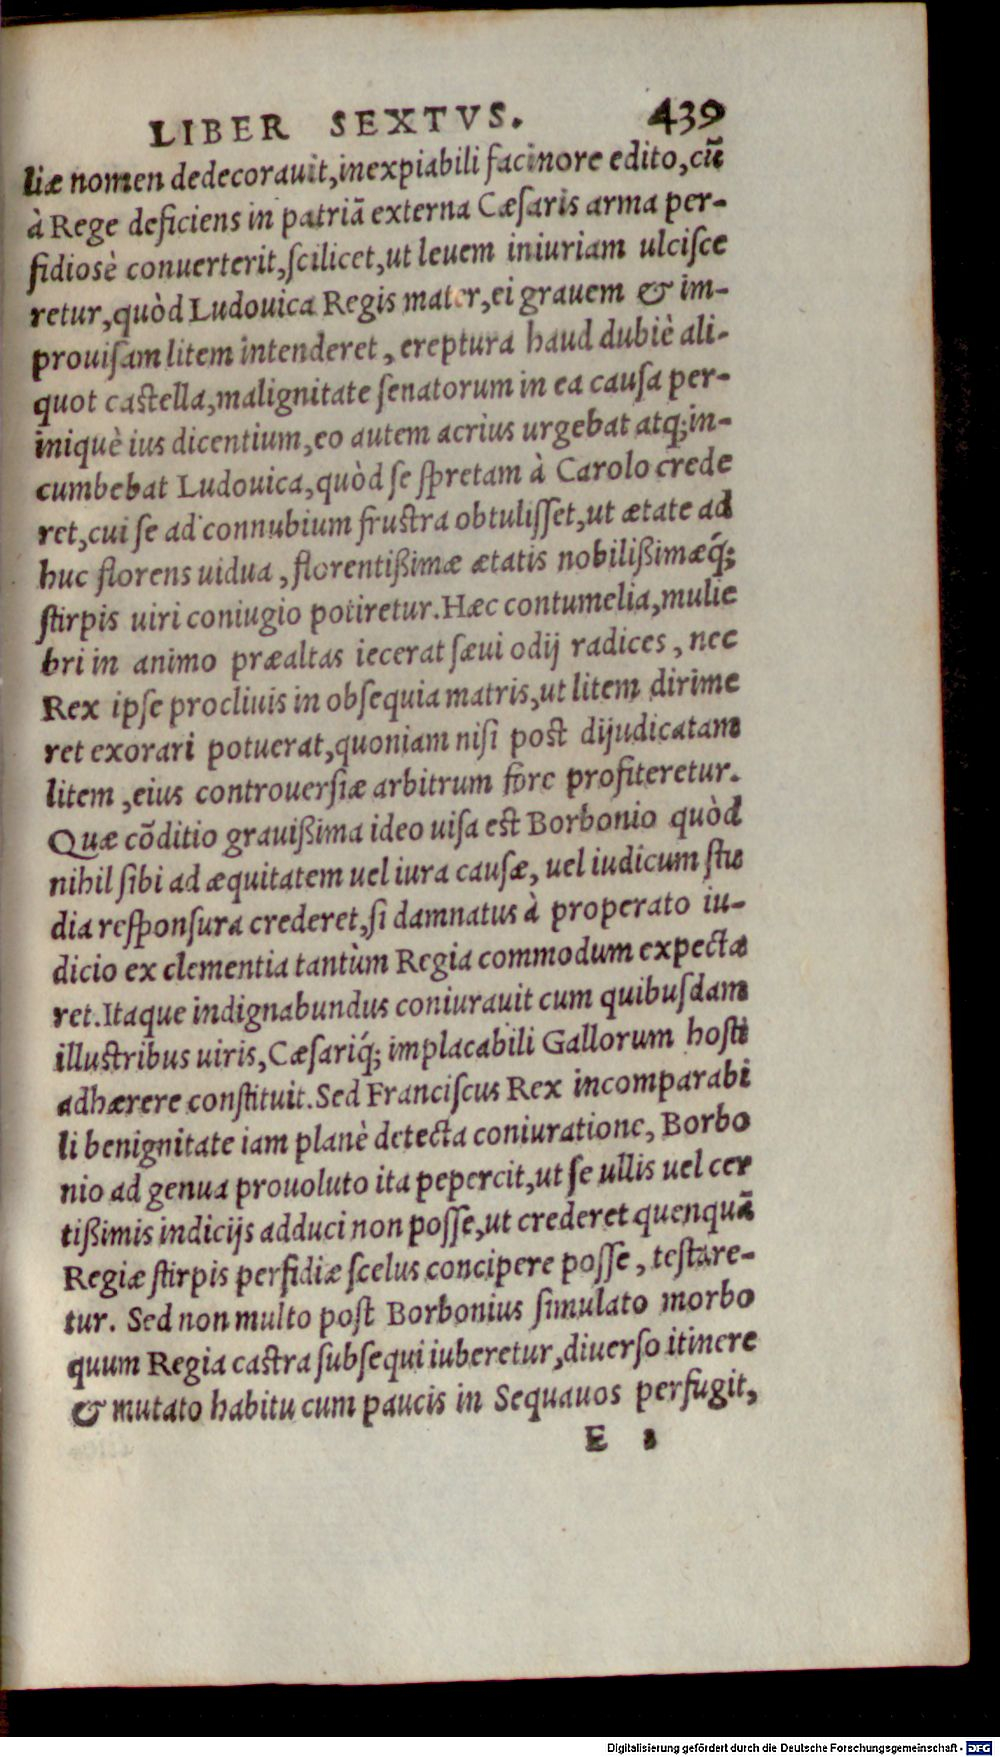 LIBER SEXTVS. 439
liæ nomen dedecorauit, inexpiabili facinore edito, cũ
à Rege deficiens in patriã externa Cæſaris arma per-
fidiosè conuerterit, ſcilicet, ut leuem iniuriam ulciſce
retur, quòd Ludouica Regis mater, ei grauem & im-
prouiſam litem intenderet, ereptura haud dubiè ali-
quot caſtella, malignitate ſenatorum in ea cauſa per-
iniquè ius dicentium, eo autem acrius urgebat atq; in-
cumbebat Ludouica, quòd ſe ſpretam à Carolo crede
ret, cui ſe ad connubium fruſtra obtuliſſet, ut ætate ad
huc florens uidua, florentißimæ ætatis nobilißimæq́;
ſtirpis uiri coniugio potiretur. Hæc contumelia, mulie
bri in animo præaltas iecerat ſæui odij radices, nec
Rex ipſe procliuis in obſequia matris, ut litem dirime
ret exorari potuerat, quoniam niſi poſt dijudicatam
litem, eius controuerſiæ arbitrum fore profiteretur.
Quæ cõditio grauißima ideo uiſa eſt Borbonio quòd
nihil ſibi ad æquitatem uel iura cauſæ, uel iudicum ſtu
dia reſponſura crederet, ſi damnatus à properato iu-
dicio ex clementia tantùm Regia commodum expecta
ret. Itaque indignabundus coniurauit cum quibuſdam
illuſtribus uiris, Cæſariq́; implacabili Gallorum hoſti
adhærere conſtituit. Sed Franciſcus Rex incomparabi
li benignitate iam planè detecta coniuratione, Borbo
nio ad genua prouoluto ita pepercit, ut ſe ullis uel cer
tißimis indicijs adduci non poſſe, ut crederet quenquã
Regiæ ſtirpis perfidiæ ſcelus concipere poſſe, teſtare-
tur. Sed non multo poſt Borbonius ſimulato morbo
quum Regia caſtra ſubſequi iuberetur, diuerſo itinere
& mutato habitu cum paucis in Sequauos perfugit,
E
Digitalisierung gefördert durch die Deutsche Forschungsgemeinschaft - DFG